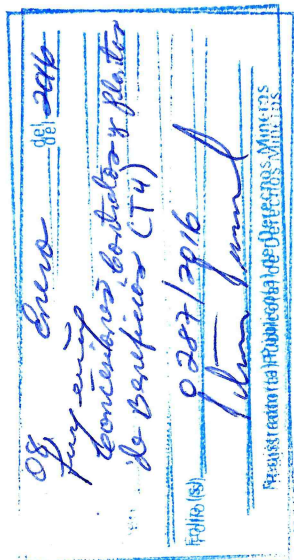 08 Enero del 2016
Concesiones Contratos y Plantas
de Beneficios (T4)
Folio (s) 0287/2016
Registrador (a) Público (a) de Derechos Mineros